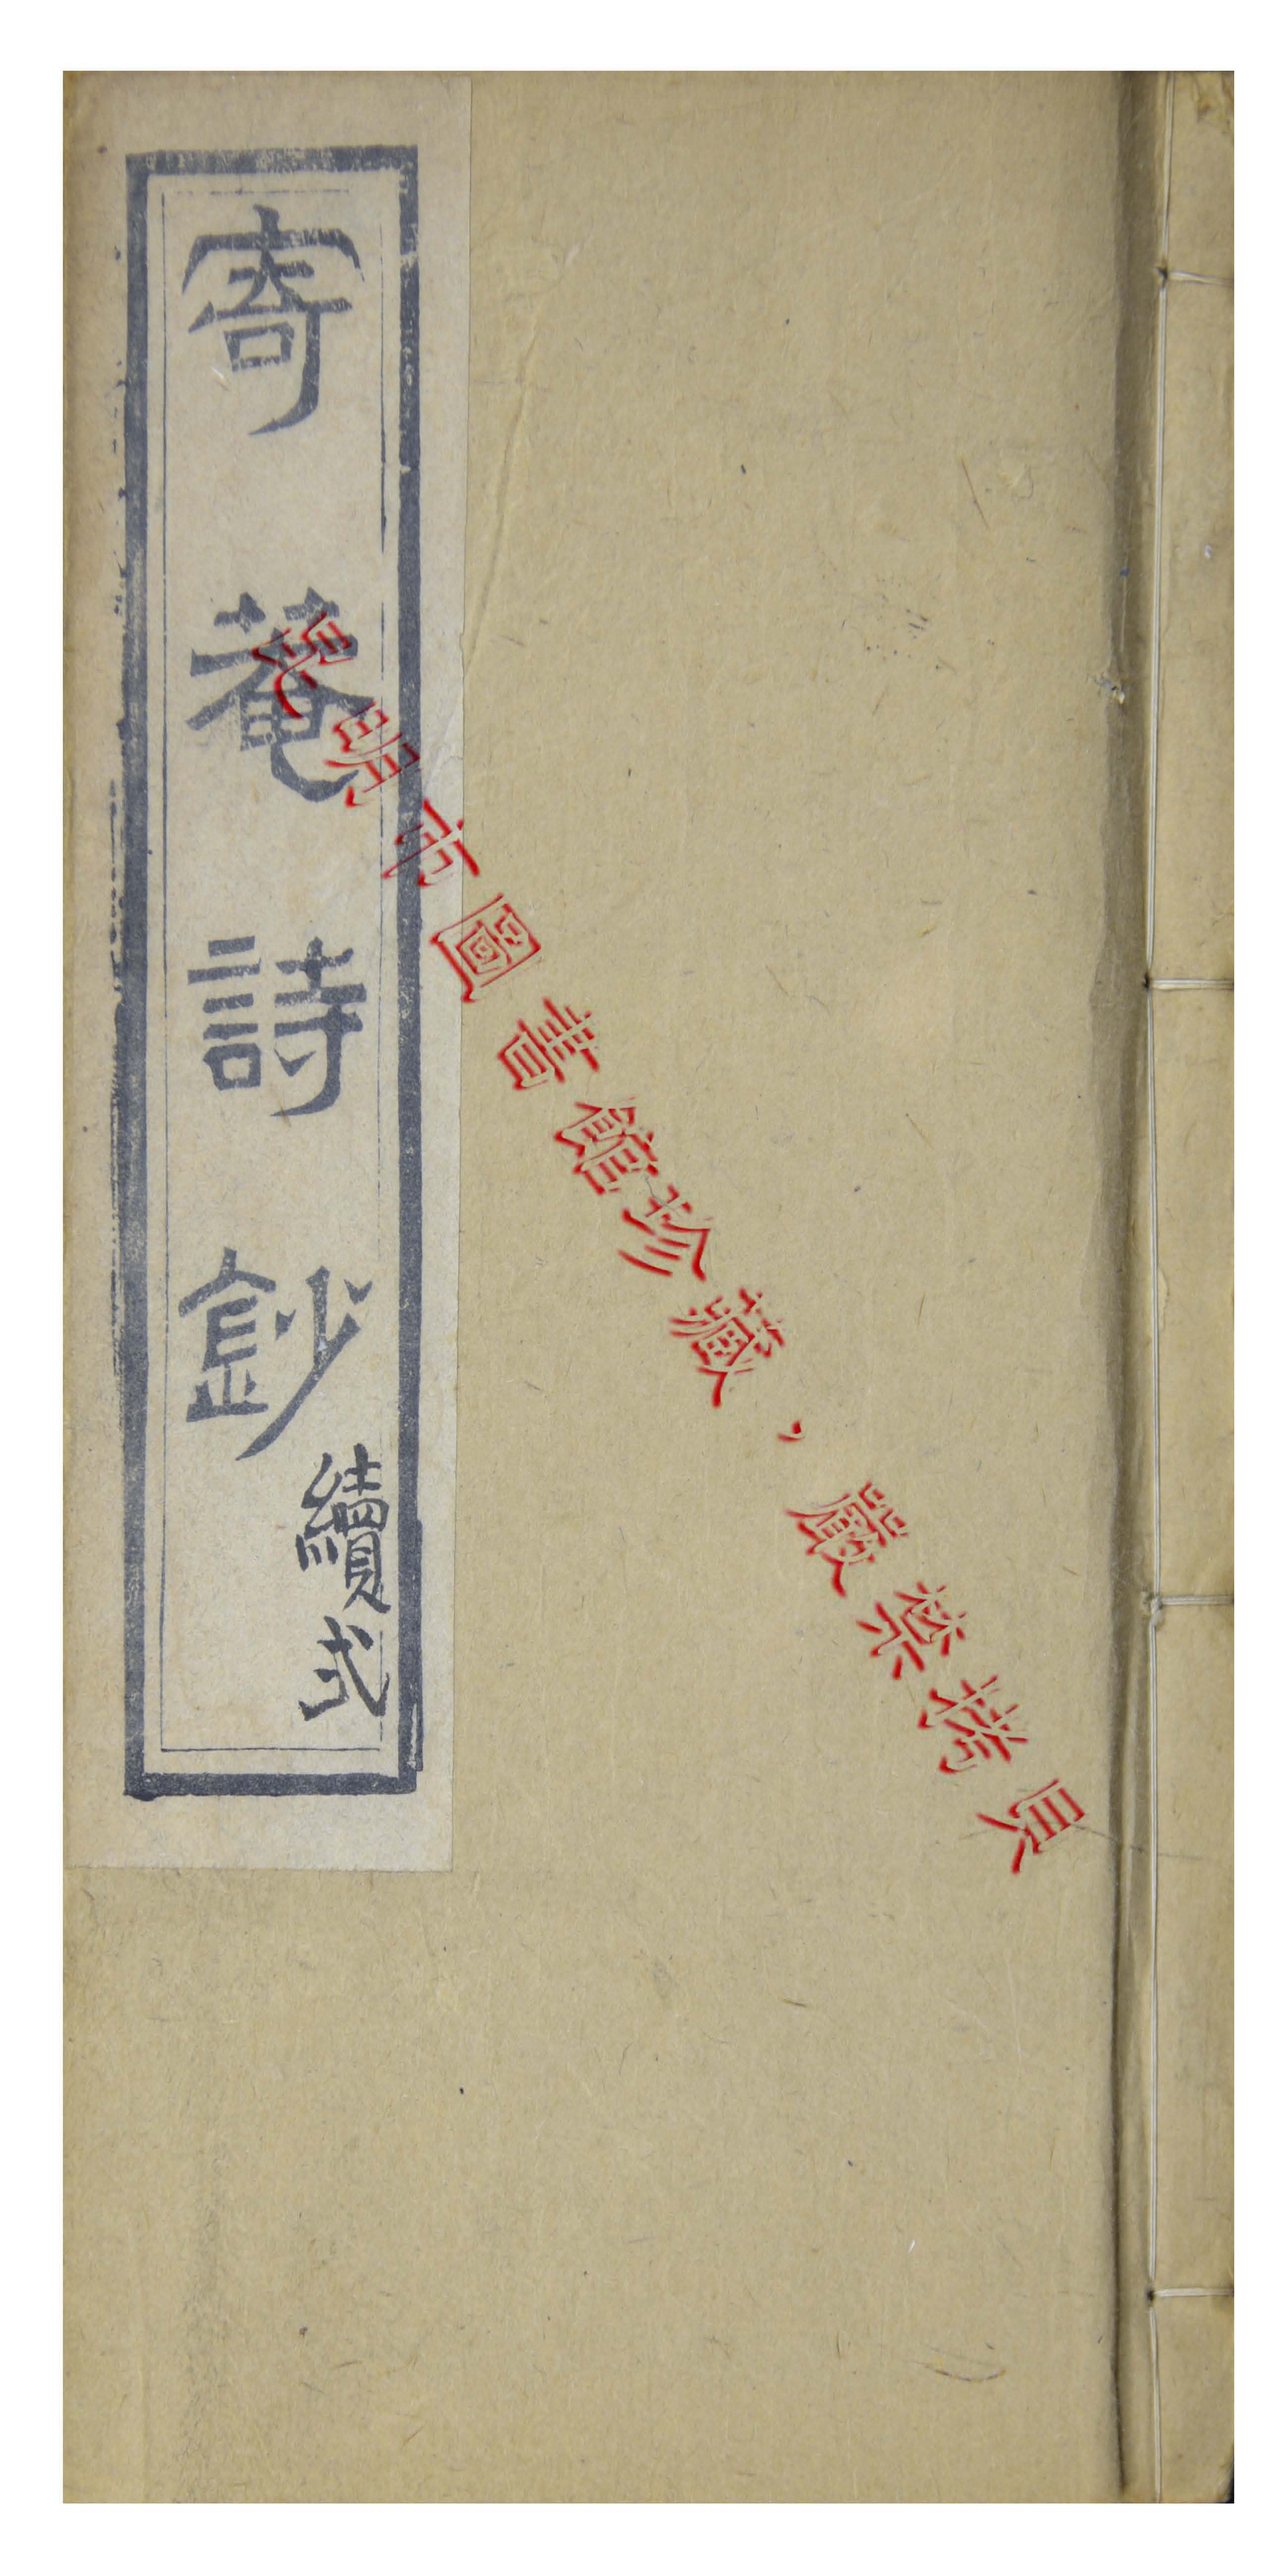 寄菴詩鈔
續弍
昆明市圖書館珍藏，嚴禁拷貝